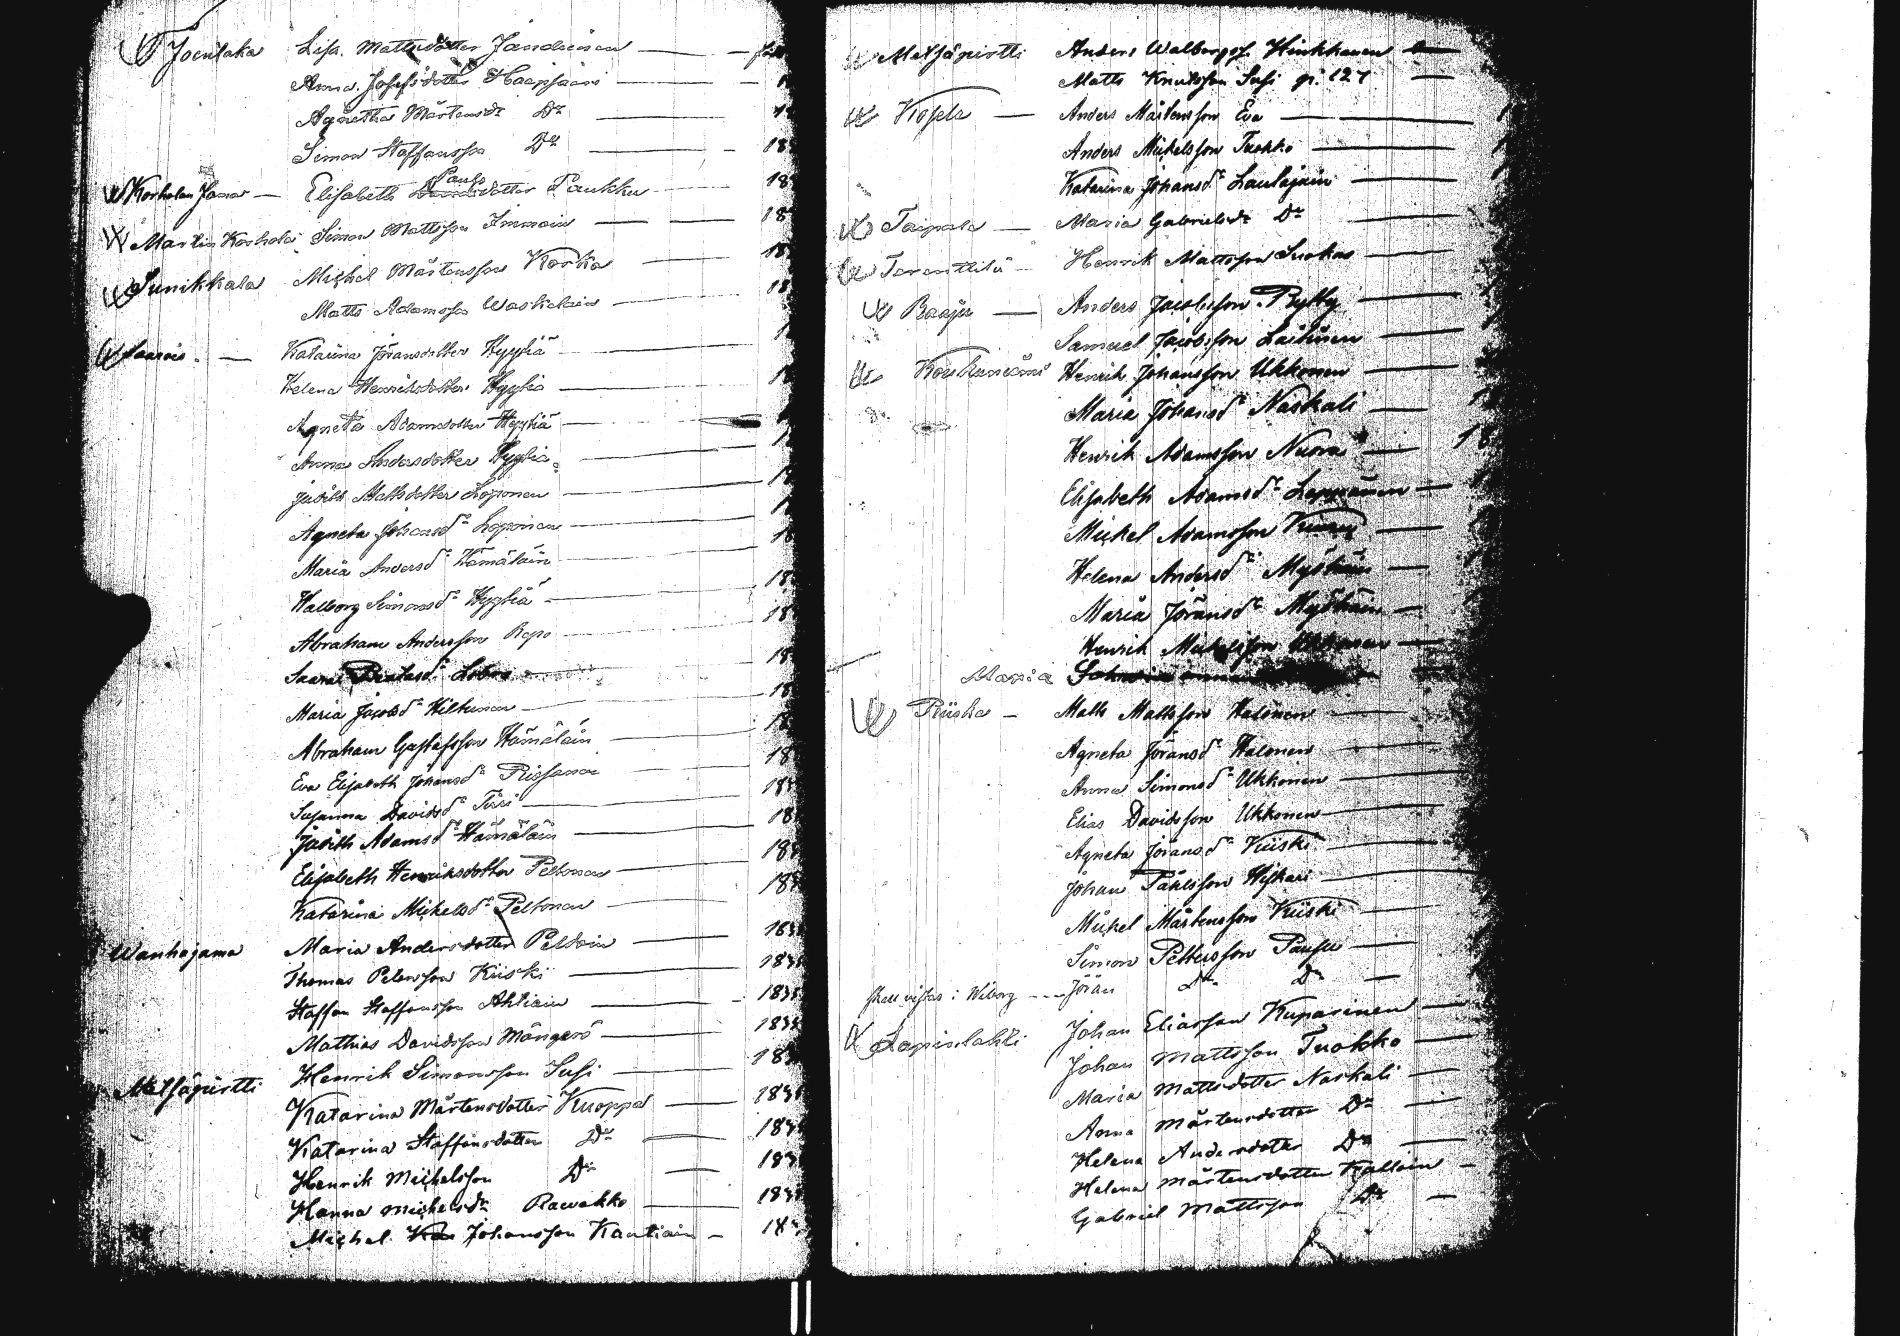 Joentaka Lisa Mattsdotter
Anna Josefsdotter Haapsaari
Agnetha Mårtensdr Do
Simon Staffansson Do 18
Elisabeth Pauls dotter Paukku 18
Martin Korhola Simon Mattsson Immoin 18
Sunikkala Michel Mårtensson Korka 18
Matts Adamsson Waskelain 18
Saarois — Katarina Jöransdotter Hyytiä
Helena Henriksdotter Hyytiä
Agneta Adamsdotter Hyytiä
Anna Andersdotter Hyytiä
Judith Mattsdotter Loponen
Agneta Johansdr Loponen
Maria Andersdr Hämäläin
Walborg Simonsdr Hyytiä 18
Abraham Andersson Repo 18
Saara 18
Maria Jacobsdr Hiltunen 18
Abraham Gustafsson Hämäläin 18
Eva Elisabeth Johansdr Rissanen 18
Susanna Davidsdr 18
Judith Adamsdr Hämäläin 18
Elisabeth Henriksdotter Peltonen 18
Katarina Mickelsdr Peltonen 18
Wanhajama Maria Andersdotter Peltoin 183
Thomas Petersson Kiiski 183
Staffan Staffansson Ahtiain 183
Mathias Davidsson Mängerö 183
Metsäpirtti Henrik Simonsson Susi 18
Katarina Mårtensdotter Kuoppa 183
Katarina Staffansdotter Do 18
Henrik Michelsson Do 183
Hanna Michelsdr Rawakko 183
Michel Johansson Kautiain 18
Metsäpirtti Anders Walborgss. Hinkkanen
Matts Knutsson Susi pi. 127
Kosela — Anders Mårtensson Eva
Anders Mickelsson Tuokko
Katarina Johansdr Laulajain
Taipale — Maria Gabrielsdr Do
Terenttilä Henrik Mattsson Suokas
Raaju — Anders Jacobsson Pytty
Samuel Jacobsson Laitinen
Koukunniemi Henrik Johansson Ukkonen
Maria Johansdr Naskali
Henrik Adamsson Nuora 18
Elisabeth Adamsdr Leppänen
Mickel Adamsson
Helena Andersdr
Maria Jöransdr
Henrik Mickelsson Ukkonen
Maria
Riiska — Matts Mattsson Halonen
Agneta Jöransdr Halonen
Anna Simonsdr Ukkonen
Elias Davidsson Ukkonen
Agneta Jöransdr Kiiski
Johan Påhlsson
Mickel Mårtensson Kiiski
Simon Pettersson Pausu
skall vistas i Wiborg --- Jöran Do Do
Lapinlahti Johan Eliasson Kuparinen
Johan Mattsson Tuokko
Maria Mattsdotter Naskali
Anna Mårtensdotter Do
Helena Andersdotter Do
Helena Mårtensdotter Kalloin
Gabriel Mattsson Do